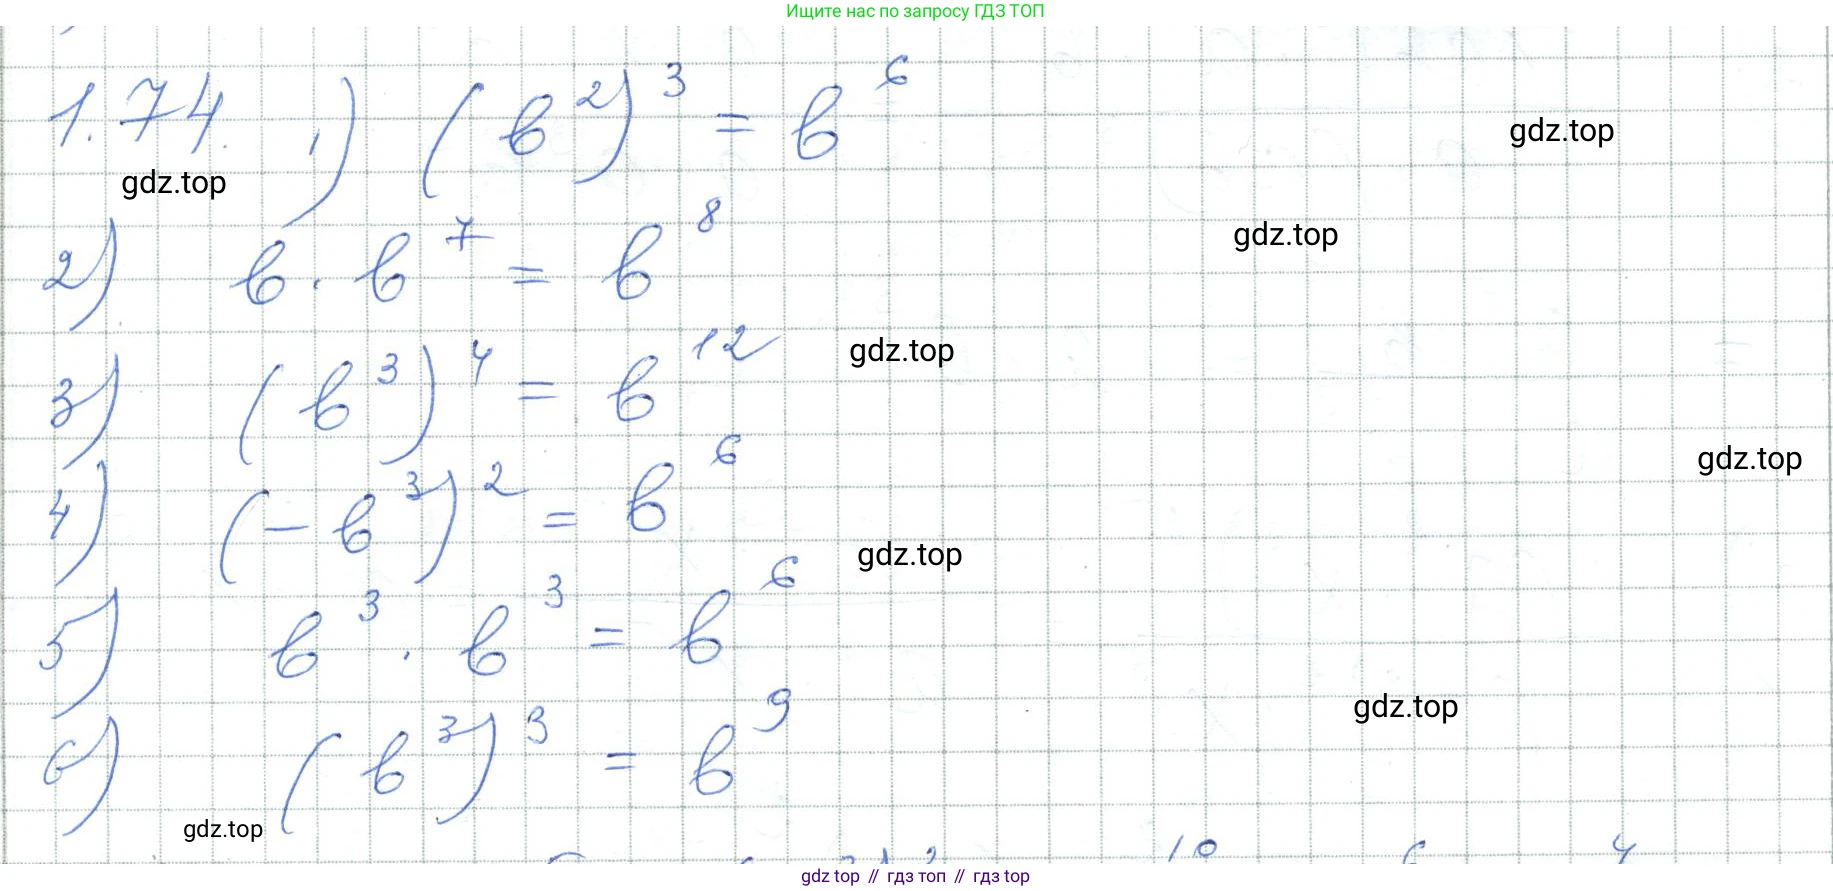 Ищите нас по запросу ГДЗ ТОП
1.74. 1) (b²)³ = b⁶
gdz.top
gdz.top
2) b · b⁷ = b⁸
gdz.top
3) (b³)⁴ = b¹²
gdz.top
gdz.top
4) (-b³)² = b⁶
gdz.top
5) b³ · b³ = b⁶
gdz.top
6) (b³)³ = b⁹
gdz.top
gdz top // гдз топ // гдз top